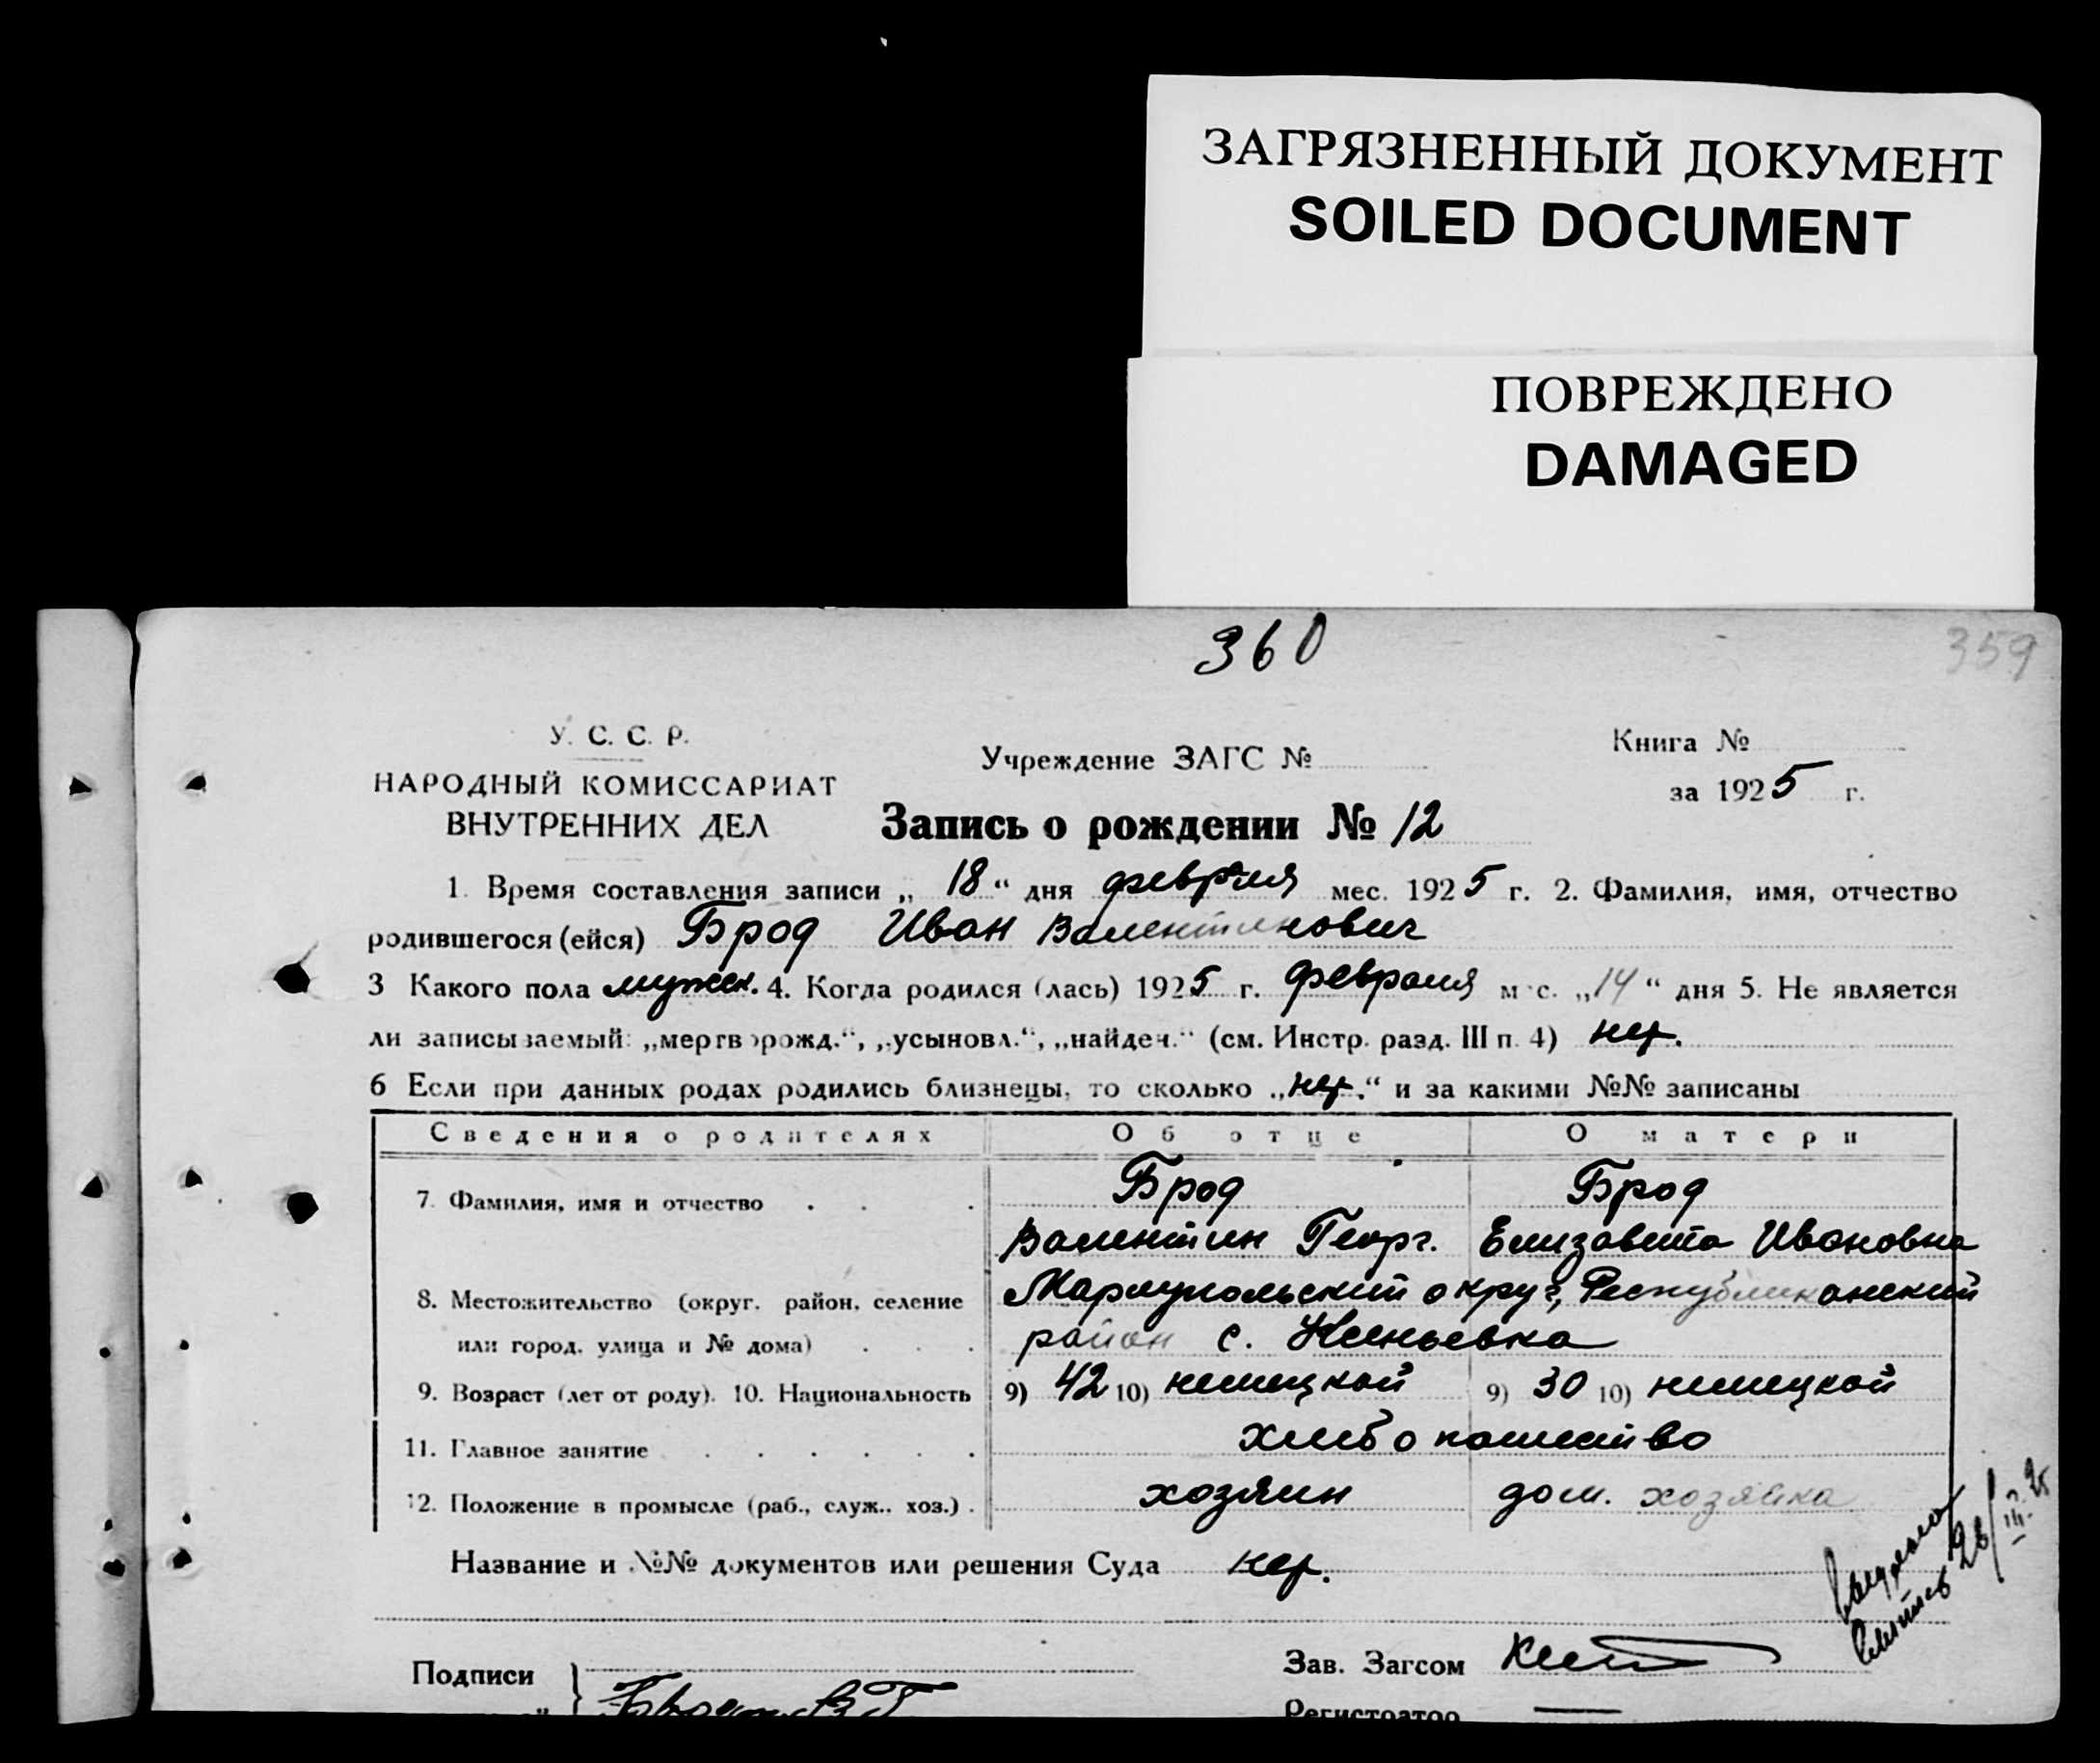 ЗАГРЯЗНЕННЫЙ ДОКУМЕНТ
SOILED DOCUMENT
ПОВРЕЖДЕНО
DAMAGED
360
359
У. С. С. Р.
НАРОДНЫЙ КОМИССАРИАТ
ВНУТРЕННИХ ДЕЛ
Учреждение ЗАГС №
Книга №
за 1925 г.
Запись о рождении № 12
1. Время составления записи „ 18 “ дня февраля мес. 1925 г. 2. Фамилия, имя, отчество
родившегося (ейся) Брод Иван Валентинович
3 Какого пола мужск. 4. Когда родился (лась) 1925 г. февраля мес. „14“ дня 5. Не является
ли записываемый: „мертворожд.“, „усыновл.“, „найден.“ (см. Инстр. разд. III п. 4) нет.
6 Если при данных родах родились близнецы, то сколько „нет.“ и за какими №№ записаны
Сведения о родителях Об отце О матери
7. Фамилия, имя и отчество . . . Брод Брод
Валентин Георг. Елизавета Ивановна
8. Местожительство (округ. район, селение Мариупольский округ, Республиканский
или город, улица и № дома) . . . район с.
9. Возраст (лет от роду). 10. Национальность 9) 42 10) немецкой 9) 30 10) немецкой
11. Главное занятие . . . . . . хлебопашество
12. Положение в промысле (раб., служ., хоз.) . хозяин дом. хозяйка
Название и №№ документов или решения Суда нет.
26/III.25
Подписи
Зав. Загсом
Регистратор